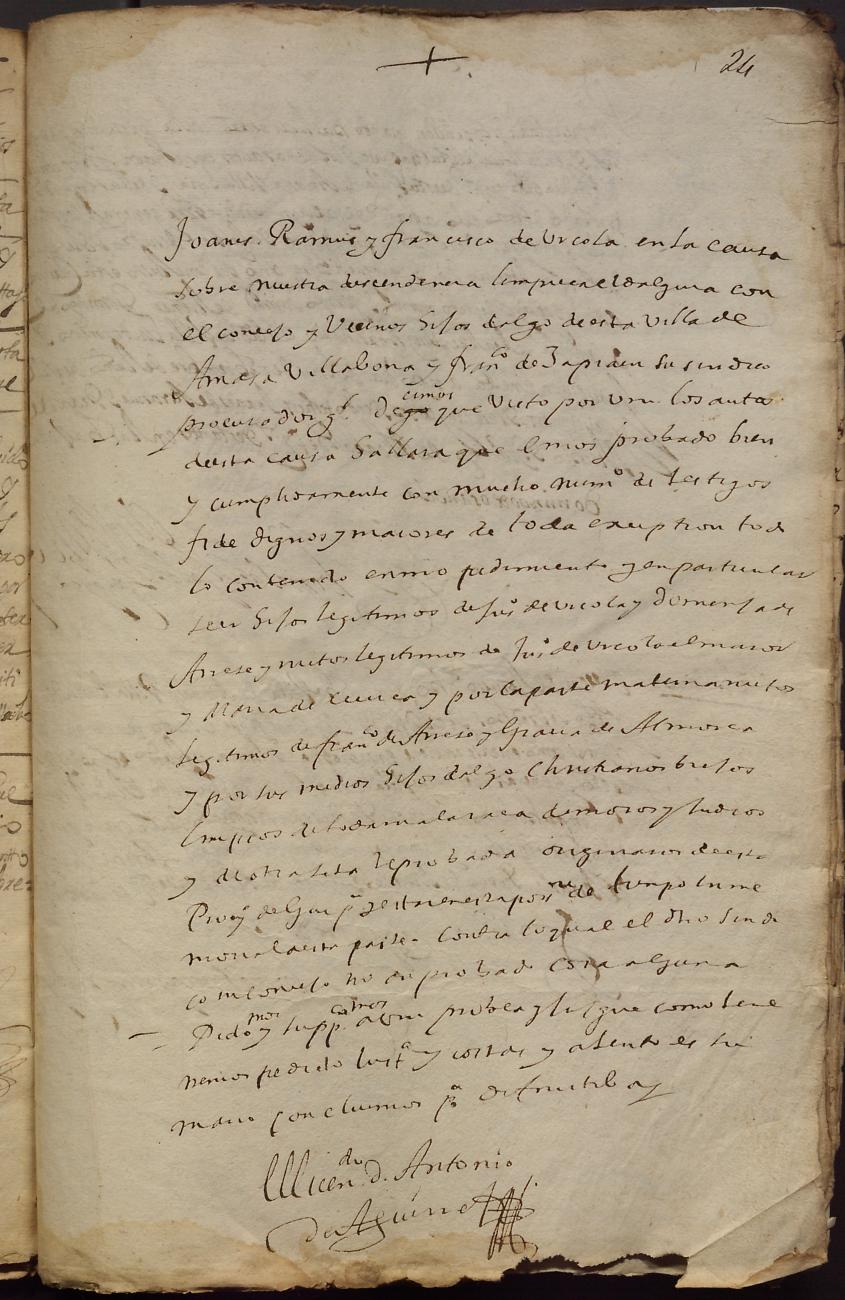 24
Joanes. Ramus y francisco de Urcola en la causa
sobre nuestra descendencia limpieça e hidalguia con
el concejo y Vecinos hijos dalgo de esta Villa de
Amasa Villabona y fran.co de Çapiain su sindico
procurador g.l decimos que Visto por Vm. los autos
de esta causa hallara que emos probado bien
y cumplidamente con mucho num.o de testigos
fide dignos y maiores de toda exeption todo
lo contenido en nro pedimiento y en particular
ser hijos legitimos de Ju.o de Urcola y Domenja de
Arrese y nietos legitimos de Ju.o de Urcola el maior
y Maria de y por la parte materna nietos
legitimos de fran.co de Arrese y Gracia de Almorca
y por sus medios hijos dalgo Christianos biejos
limpios de toda mala raca de moros y Judios
y de otra seta reprobada originarios de esta
Prov.a de Guip.a de tiempo imme
morial a esta parte. Contra lo qual el dho sindi
co ni concejo no an probado cosa alguna
Pedimos y supp.camos a Vm probea y Jusgue como tene
nemos pedido Just.a y costas y atento es su
mario concluimos p.a difinitiba y
Licen.do d. Antonio
de Aguirre